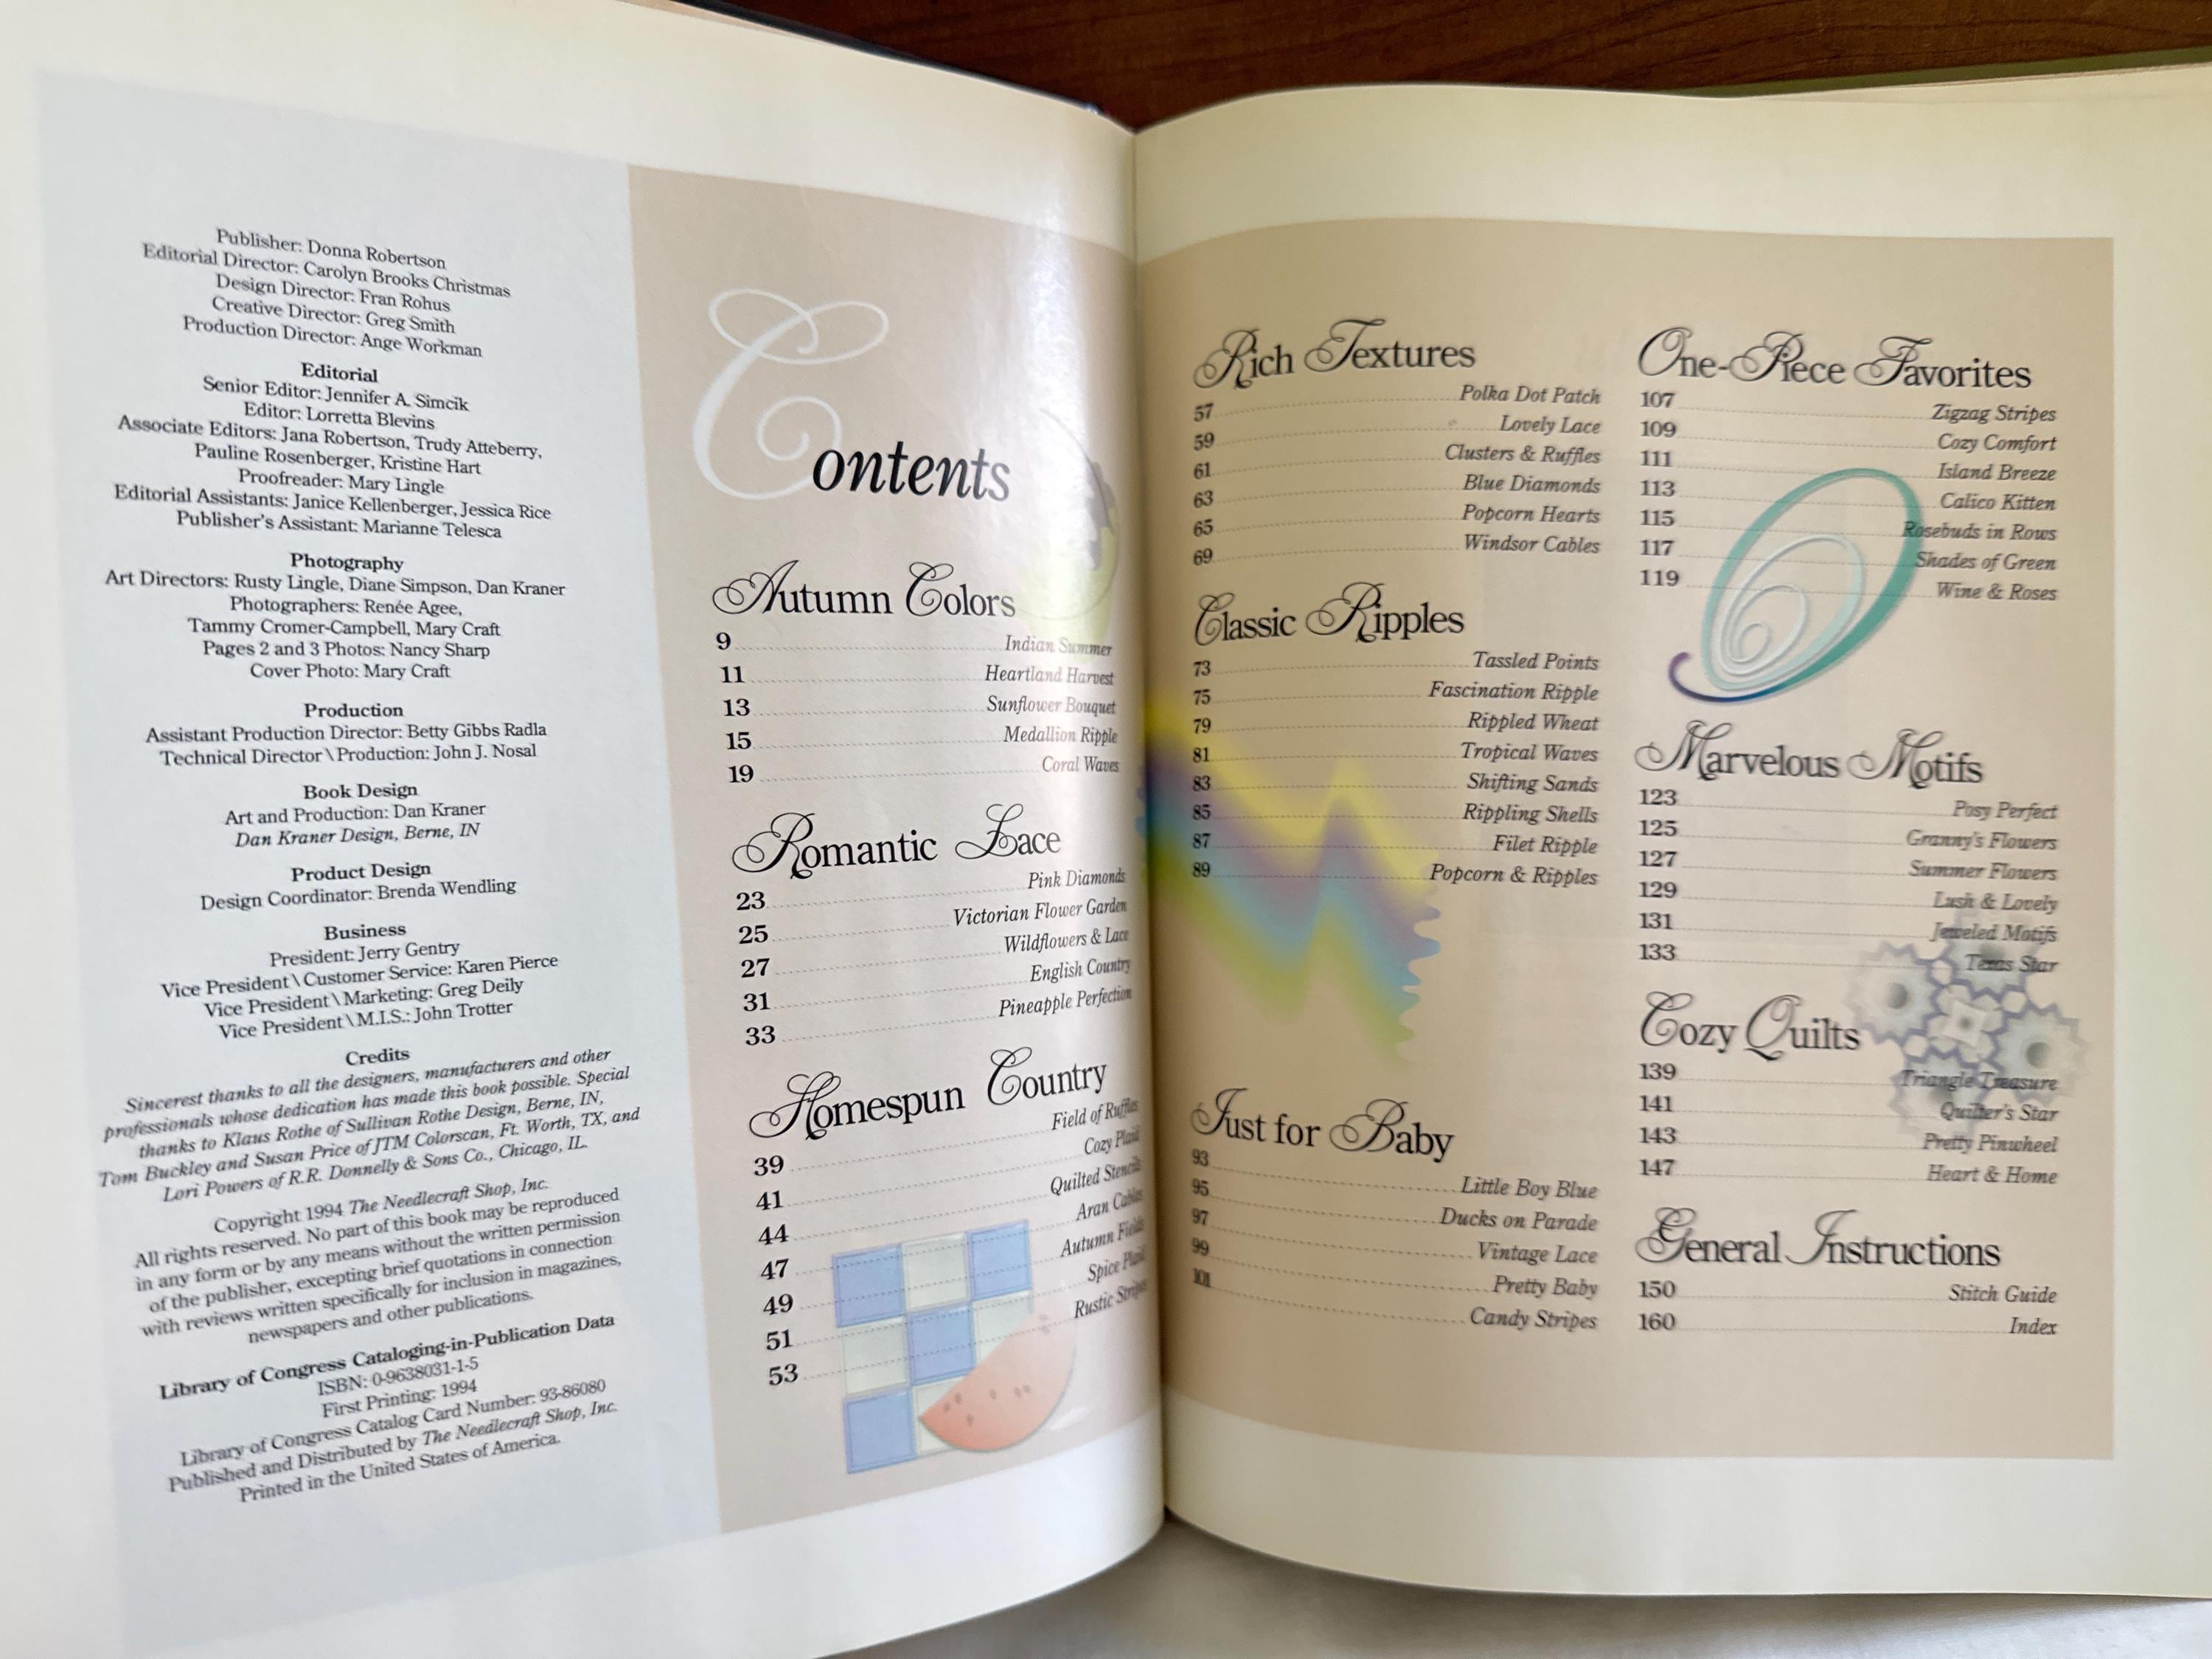 Publisher: Donna Robertson
Editorial Director: Carolyn Brooks Christmas
Design Director: Fran Rohus
Creative Director: Greg Smith
Production Director: Ange Workman
Editorial
Senior Editor: Jennifer A. Simcik
Editor: Lorretta Blevins
Associate Editors: Jana Robertson, Trudy Atteberry,
Pauline Rosenberger, Kristine Hart
Proofreader: Mary Lingle
Editorial Assistants: Janice Kellenberger, Jessica Rice
Publisher's Assistant: Marianne Telesca
Photography
Art Directors: Rusty Lingle, Diane Simpson, Dan Kraner
Photographers: Renée Agee,
Tammy Cromer-Campbell, Mary Craft
Pages 2 and 3 Photos: Nancy Sharp
Cover Photo: Mary Craft
Production
Assistant Production Director: Betty Gibbs Radla
Technical Director \ Production: John J. Nosal
Book Design
Art and Production: Dan Kraner
Dan Kraner Design, Berne, IN
Product Design
Design Coordinator: Brenda Wendling
Business
President: Jerry Gentry
Vice President \ Customer Service: Karen Pierce
Vice President \ Marketing: Greg Deily
Vice President \ M.I.S.: John Trotter
Credits
Sincerest thanks to all the designers, manufacturers and other
professionals whose dedication has made this book possible. Special
thanks to Klaus Rothe of Sullivan Rothe Design, Berne, IN,
Tom Buckley and Susan Price of JTM Colorscan, Ft. Worth, TX, and
Lori Powers of R.R. Donnelly & Sons Co., Chicago, IL.
Copyright 1994 The Needlecraft Shop, Inc.
All rights reserved. No part of this book may be reproduced
in any form or by any means without the written permission
of the publisher, excepting brief quotations in connection
with reviews written specifically for inclusion in magazines,
newspapers and other publications.
Library of Congress Cataloging-in-Publication Data
ISBN: 0-9638031-1-5
First Printing: 1994
Library of Congress Catalog Card Number: 93-86080
Published and Distributed by The Needlecraft Shop, Inc.
Printed in the United States of America.
Contents
Autumn Colors
9 Indian Summer
11 Heartland Harvest
13 Sunflower Bouquet
15 Medallion Ripple
19 Coral Waves
Romantic Lace
23 Pink Diamonds
25 Victorian Flower Garden
27 Wildflowers & Lace
31 English Country
33 Pineapple Perfection
Homespun Country
39 Field of Ruffles
41 Cozy Plaid
44 Quilted Stencils
47 Aran Cables
49 Autumn Fields
51 Spice Plaid
53 Rustic Stripes
Rich Textures
57 Polka Dot Patch
59 Lovely Lace
61 Clusters & Ruffles
63 Blue Diamonds
65 Popcorn Hearts
69 Windsor Cables
Classic Ripples
73 Tassled Points
75 Fascination Ripple
79 Rippled Wheat
81 Tropical Waves
83 Shifting Sands
85 Rippling Shells
87 Filet Ripple
89 Popcorn & Ripples
Just for Baby
93 Little Boy Blue
95 Ducks on Parade
97 Vintage Lace
99 Pretty Baby
101 Candy Stripes
One-Piece Favorites
107 Zigzag Stripes
109 Cozy Comfort
111 Island Breeze
113 Calico Kitten
115 Rosebuds in Rows
117 Shades of Green
119 Wine & Roses
Marvelous Motifs
123 Posy Perfect
125 Granny's Flowers
127 Summer Flowers
129 Lush & Lovely
131 Jeweled Motifs
133 Texas Star
Cozy Quilts
139 Triangle Treasure
141 Quilter's Star
143 Pretty Pinwheel
147 Heart & Home
General Instructions
150 Stitch Guide
160 Index